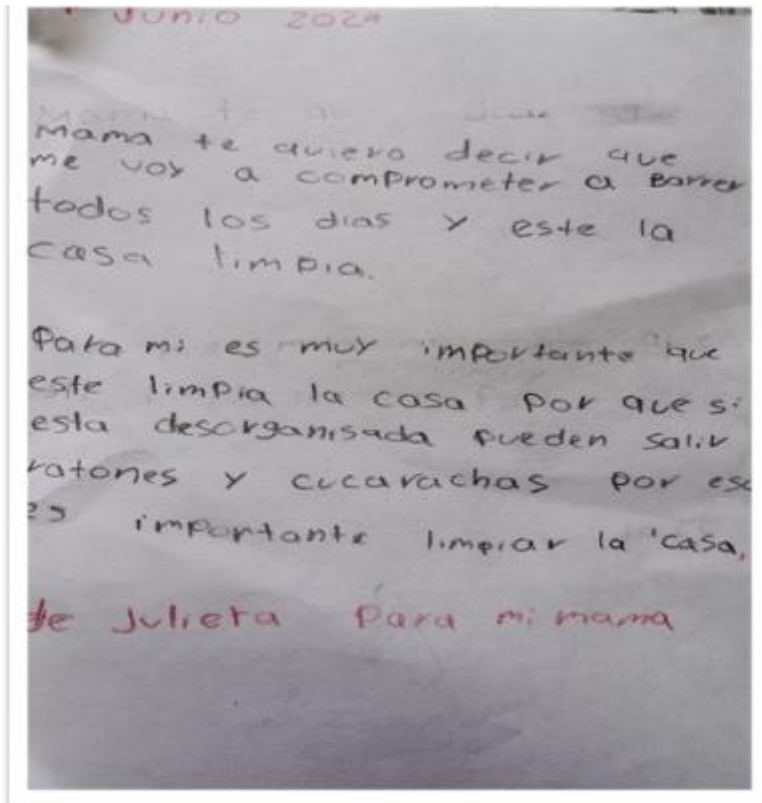 Junio 2024
Mama te
Mama te quiero decir que
me voy a comprometer a barrer
todos los dias y este la
casa limpia.
Para mi es muy importante que
este limpia la casa por que si
esta desorganisada pueden salir
ratones y cucarachas por eso
es importante limpiar la casa,
de Julieta Para mi mama